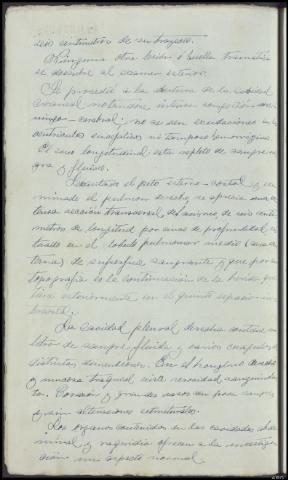 seis centímetros de su trayecto.
Ninguna otra lesión o huella traumática
se descubre al examen exterior.
Se procedió a la abertura de la cavidad
craneal notándose intensa congestión me-
ningo-cerebral; no se ven exudaciones en
ventrículos encefálicos ni tampoco hemorragias.
El seno longitudinal está repleto de sangre ne-
gra y fluida.
Levantado el peto esterno-costal y exa-
minado el pulmón derecho se aprecia una ex-
tensa sección transversal, de seis centí-
metros de longitud por cinco de profundidad si-
tuada en el lóbulo pulmonar medio (cara ex-
terna) de superficie sangrante y que por su
topografía es la continuación de la herida que
exteriormente en el quinto espacio in-
tercostal.
La cavidad pleural derecha contiene un
litro de sangre fluida y varios coágulos de
distintas dimensiones. En el bronquio derecho
y mucosa traqueal cierta serosidad sanguinolen-
ta. Corazón y grandes vasos con poca sangre
y sin alteraciones estructurales.
Los órganos contenidos en las cavidades abdo-
minal y raquídea ofrecen a la investiga-
ción un aspecto normal